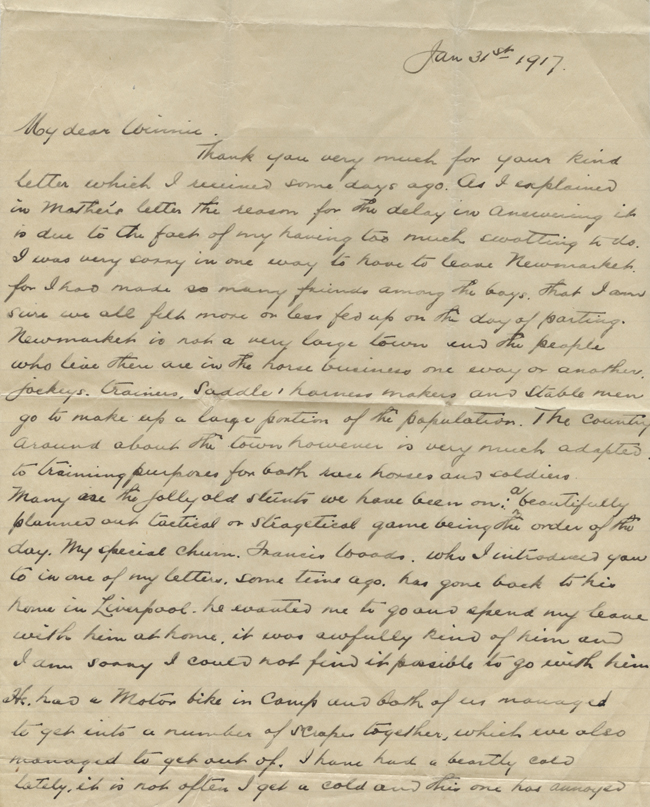 Jan 31st 1917.
My dear Winnie.
Thank you very much for your kind
letter which I received some days ago. As I explained
in Mother's letter the reason for the delay in answering it
is due to the fact of my having too much swotting to do.
I was very sorry in one way to have to leave Newmarket.
for I had made so many friends among the boys. that I am
sure we all felt more or less fed up on the day of parting.
Newmarket is not a very large town and the people
who live there are in the horse business one way or another.
Jockeys. trainers, saddle & harness makers and stable men
go to make up a large portion of the population. The country
around about the town however is very much adapted
to training purposes for both race horses and soldiers.
Many are the jolly old stunts we have been on: a beautifully
planned out tactical or stragetical game being the order of the
day. My special chum. Francis Woods. who I introduced you
to in one of my letters. some time ago. has gone back to his
home in Liverpool. he wanted me to go and spend my leave
with him at home. it was awfully kind of him and
I am sorry I could not find it possible to go with him
He. had a Motor bike in Camp and both of us managed
to get into a number of scrapes together, which we also
managed to get out of. I have had a beastly cold
lately, it is not often I get a cold and this one has annoyed